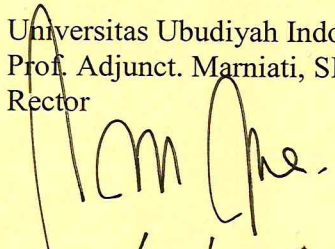 Universitas Ubudiyah Indo
Prof. Adjunct. Marniati, S
Rector